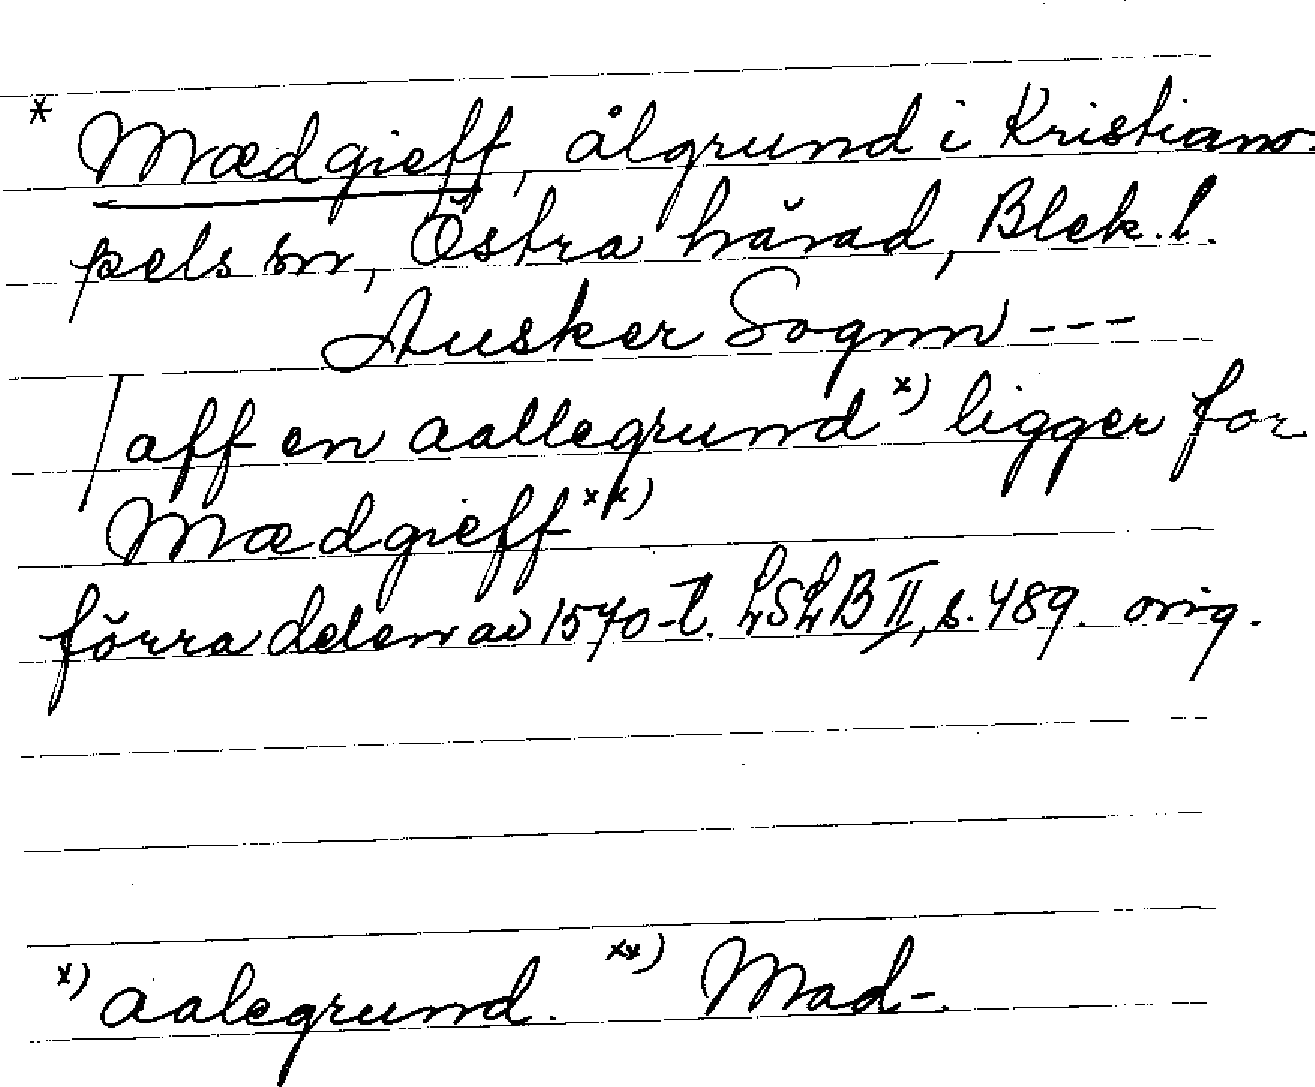 * Mædgieff, ålgrund i Kristiano-
pels sn, Östra härad, Blek. l.
Ausker Sognn ---
/ aff en aallegrund x) ligger for
Mædgieff xx)
förra delen av 1570-t. LSLB II, s. 489. orig.
x) aalegrund. xx) Mad-.